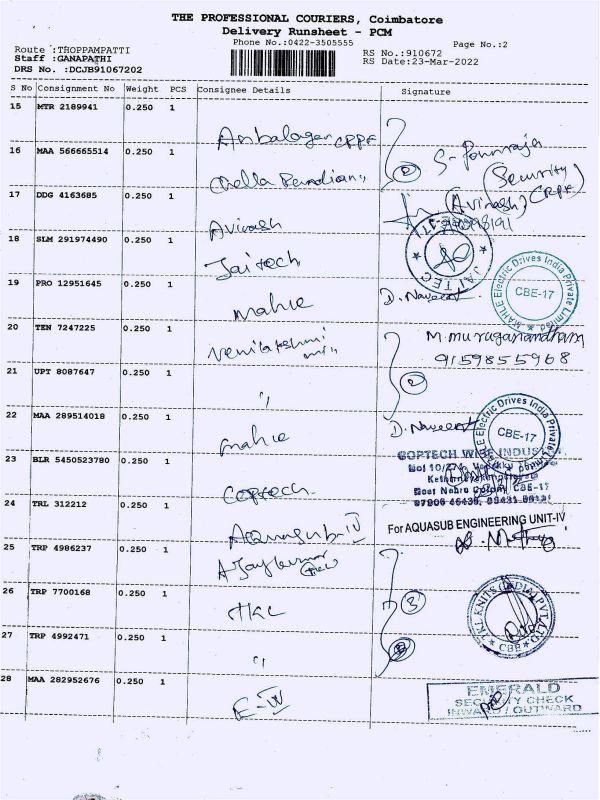 THE PROFESSIONAL COURIERS, Coimbatore
Delivery Runsheet - PCM
Phone No.:0422-3505555
Page No.:2
Route :THOPPAMPATTI
RS No.:910672
Staff :GANAPATHI
RS Date:23-Mar-2022
DRS No. :DCJB91067202
S No Consignment No Weight PCS Consignee Details Signature
15 MTR 2189941 0.250 1
Anbalagan CRPF
S- Ponnraja
16 MAA 566665514 0.250 1
(Security)
Chella Pandian 2 CRPF
17 DDG 4163685 0.250 1
(Avinash)
Avinash
18 SLM 291974490 0.250 1
JAITEC
Jaitech
19 PRO 12951645 0.250 1
MAHLE Electric Drives India Private Limited
CBE-17
Mahle D. Naveen
20 TEN 7247225 0.250 1
M. Muruganandham
Venilakshmi 9159855968
21 UPT 8087647 0.250 1
" 2
22 MAA 289514018 0.250 1
Mahle D. Naveen
MAHLE Electric Drives India Private Limited
CBE-17
23 BLR 5450523780 0.250 1
COPTECH WIRE INDUSTRI
Coptech
24 TRL 312212 0.250 1
For AQUASUB ENGINEERING UNIT-IV
Aquasub-IV
25 TRP 4986237 0.250 1
Ajaykumar
26 TRP 7700168 0.250 1
TKL KNITS (INDIA) PVT LTD
CBE
TKL 3
27 TRP 4992471 0.250 1
"
28 MAA 282952676 0.250 1
EMERALD
SECURITY CHECK
INWARD / OUTWARD
E-IV